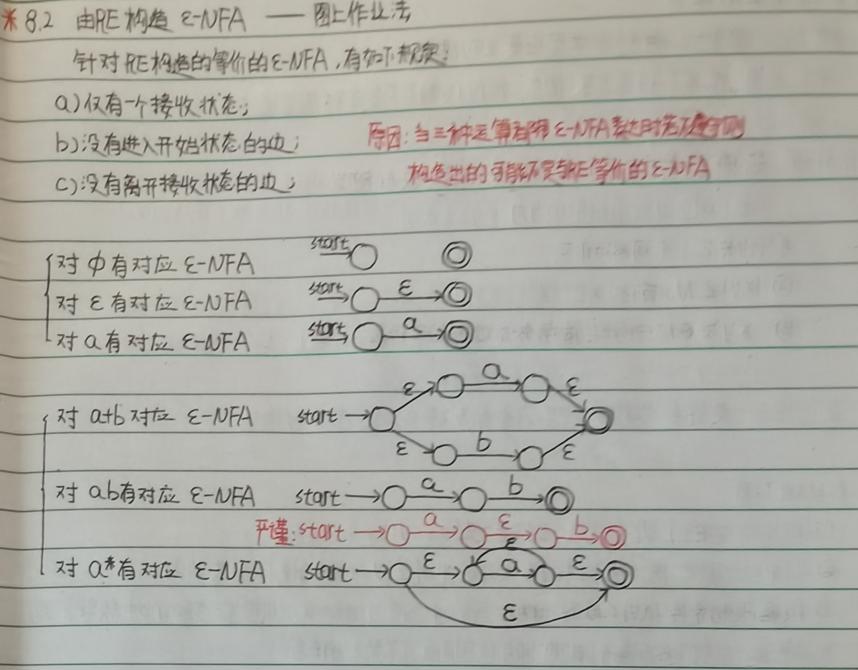 ※ 8.2 由RE构造 ε-NFA —— 图上作业法
针对RE构造的等价的ε-NFA,有如下规定:
a)仅有一个接收状态;
b)没有进入开始状态的边;
c)没有离开接收状态的边;
原因:当三种运算都用ε-NFA表达时若不遵守则
构造出的可能不是与RE等价的ε-NFA
对 φ 有对应 ε-NFA start
对 ε 有对应 ε-NFA start ε
对 a 有对应 ε-NFA start a
对 a+b 对应 ε-NFA start ε a ε ε b ε
对 ab 有对应 ε-NFA start a b
严谨: start a ε b
对 a* 有对应 ε-NFA start ε a ε ε ε